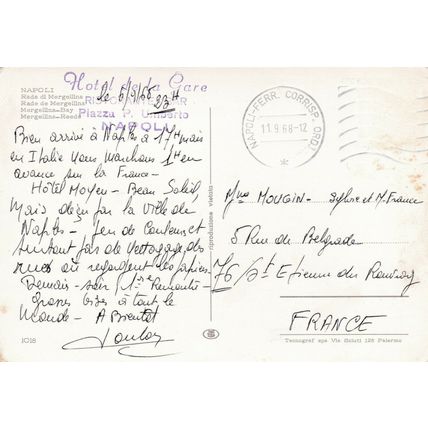 NAPOLI
Rada di Mergellina
Rade de Mergellina
Mergellina-Bay
Mergellina-Reede
Hotel de la Gare
RISTORANTE BAR
Piazza P. Umberto
NAPOLI
le 6/9/68
23H
Bien arrivé à Naples à 17H mais
en Italie nous marchons 1H en
avance sur la France -
Hôtel Moyen - Beau Soleil,
Mais déçu par la ville de
Naples - peu de Couleurs et
surtout pas de nettoyage des
rues où les papiers
Demain - soir 1ère Remonté -
Grosses bises à tout le
Monde - A Bientôt
1018
riproduzione vietata
NAPOLI-FERR. CORRISP. ORD.
11.9.68-12
Mme MOUGIN - Sylvie et M. France
5 Rue de Belgrade
76/St Etienne du Rouvray
FRANCE
Tecnograf spa Via Goiuti 128 Palermo